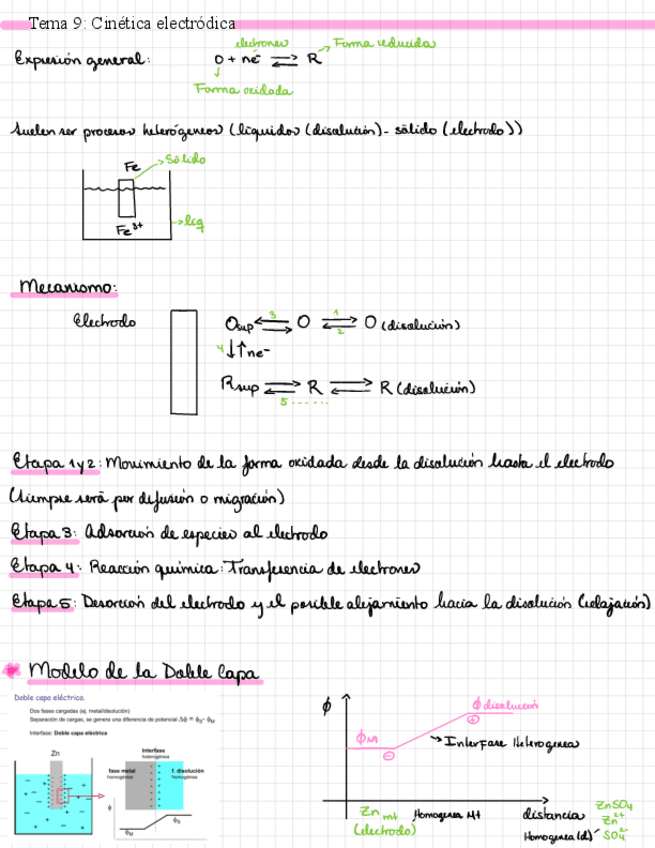 Tema 9: Cinética electródica
electrones
Forma reducida
Expresión general: O + ne⁻ ⇌ R
Forma oxidada
Suelen ser procesos heterógeneos (líquidos (disolución) - sólido (electrodo))
Fe
Sólido
liq
Fe³⁺
Mecanismo:
Electrodo
Osup ⇌ O ⇌ O (disolución)
3 1 2
4 ↓↑ ne⁻
Rsup ⇌ R ⇌ R (disolución)
5 ......
Etapa 1 y 2: Movimiento de la forma oxidada desde la disolución hasta el electrodo
(siempre será por difusión o migración)
Etapa 3: Adsorción de especies al electrodo
Etapa 4: Reacción química: Transferencia de electrones
Etapa 5: Desorción del electrodo y el posible alejamiento hacia la disolución (relajación)
Modelo de la Doble Capa
Doble capa eléctrica.
Dos fases cargadas (ej. metal/disolución)
Separación de cargas, se genera una diferencia de potencial Δϕ = ϕS - ϕM
Interfase: Doble capa eléctrica
Zn
Interfase
heterogénea
fase metal
homogénea
f. disolución
homogénea
ϕ
ϕM
ϕS
ϕ
ϕ disolución
ϕM
Interfase Heterogenea
Zn mt
(electrodo)
Homogenea Mt
distancia
Homogenea (d)
ZnSO₄
Zn²⁺
SO₄²⁻